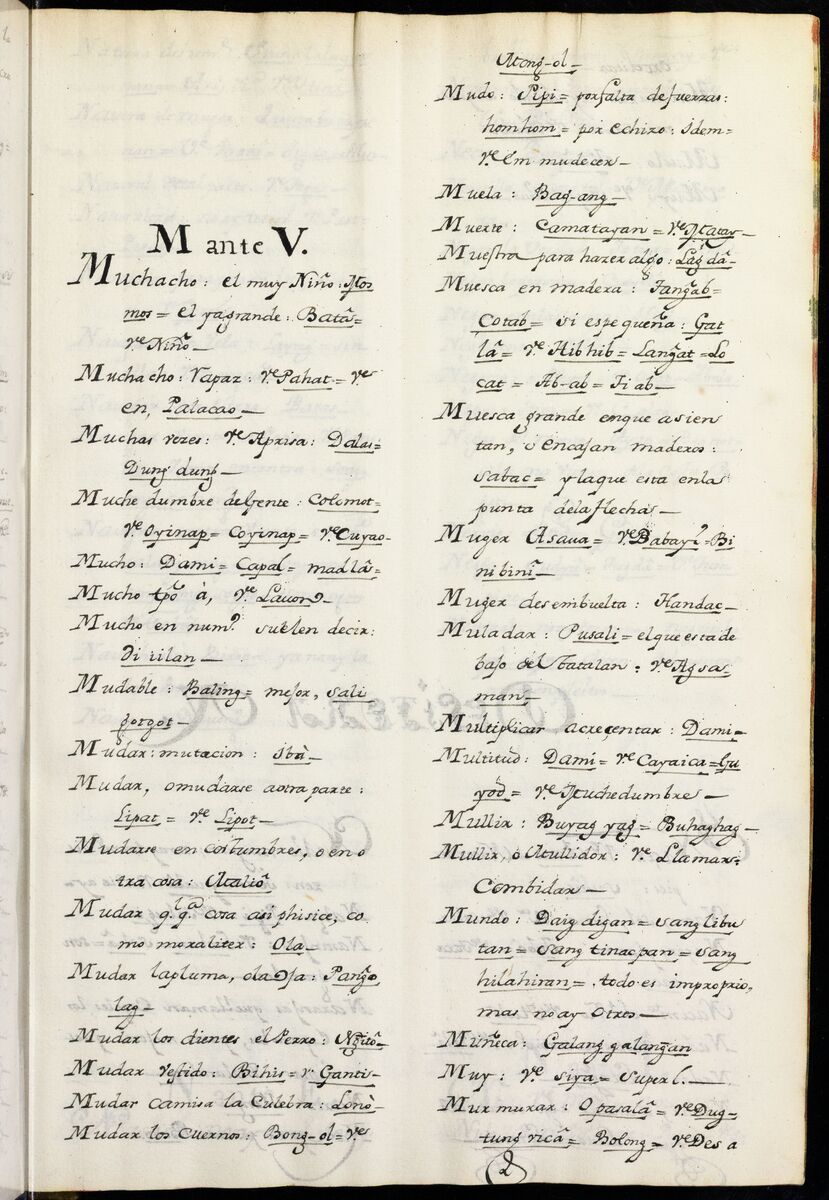 M ante V.
Muchacho: el muy Niño: Mos
mos= el ya grande: Batà=
Vᵉ Niño—
Muchacho: Rapaz: Vᵉ Pahat= Vᵉ
en, Palacao—
Muchas vezes: Vᵉ Aprisa: Dalas=
Dung dung—
Muche dumbre de gente: Colomot=
Vᵉ Oyinap= Coyinap= Vᵉ Cuyao—
Mucho: Dami= Capal= madlã=
Mucho tpō à, Vᵉ Lauon—
Mucho en numº suelen decir:
di uilan—
Mudable: Baling= mejor, sali
gorgot—
Mudar: mutacion: Ibà—
Mudar, o mudarse a otra parte:
Lipat= Vᵉ Lipot—
Mudarse en costumbres, o en o
tra cosa: Atalió
Mudar q.ˡq.ᵃ cosa asi phisice, co
mo moraliter: Ola—
Mudar la pluma, ola oja: Pang̃o
lag—
Mudar los dientes el Perro: Ng̃itô—
Mudar vestido: Bihis= V. Ganti—
Mudar camisa la Culebra: Lonò—
Mudar los cuernos: Bong-ol= Vᵉ
Atong-ol—
Mudo: Pipi= por falta de fuerzas:
homhom= por echizo: Idem=
Vᵉ Em mudecer—
Muela: Bag-ang—
Muerte: Camatayan= Vᵉ Matar—
Muestra para hazer algo: Lag̃dâ—
Muesca en madera: Tang̃ab=
Cotab= si es pequeña: Gat
lâ= Vᵉ Hibhib= Lang̃at= Lo
cat= Ab-ab= Tiab—
Muesca grande en que asien
tan, ò encajan maderos:
sabac= y la que esta en la
punta de la flecha—
Muger Asaua= Vᵉ Babayi= Bi
nibinî—
Muger desembuelta: Handac—
Muladar: Pusali= el que esta de
bajo del batalan: Vᵉ Agsa=
man—
Multiplicar acreçentar: Dami=
Multitud: Dami= Vᵉ Cayaica= Gu
yód= Vᵉ Muchedumbre—
Mullir: Buyag yag= Buhaghag—
Mullir, ò Atullidor: Vᵉ Llamar:
Combidar—
Mundo: Daig digan= sanglibu
tan= sang tinacpan= sang
hilahiran= todo es improprio,
mas no ay otros—
Muñeca: Galang galang̃an
Muy: Vᵉ siya= superl.—
Mur murar: Opasalâ= Vᵉ Dug=
tung ricâ= Bolong= Vᵉ Des a
2